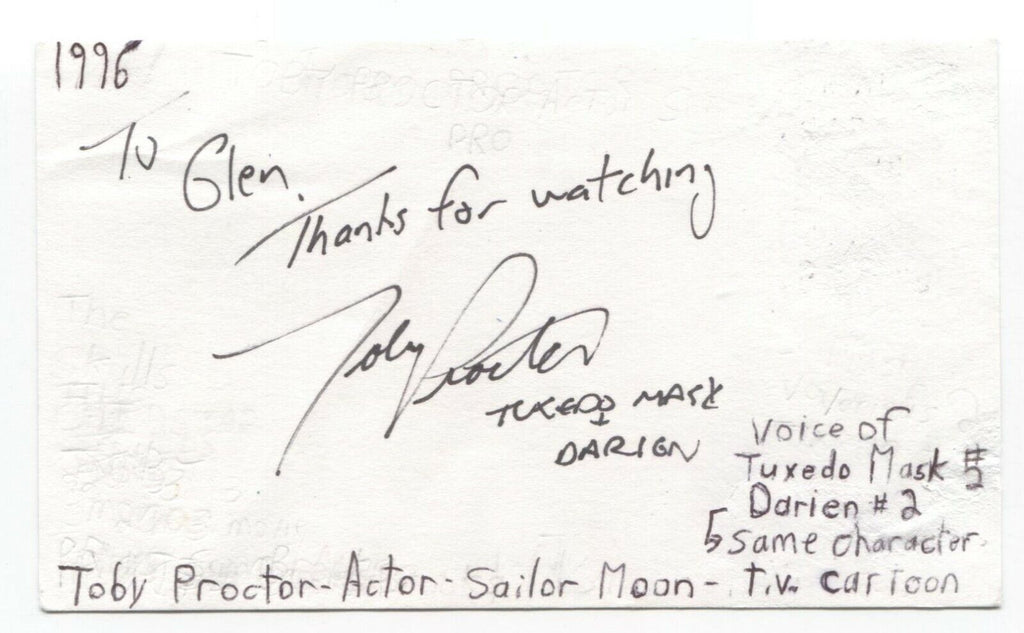 1996
To Glen.
Thanks for watching
Toby Proctor
TUXEDO MASK
DARIEN
Voice of
Tuxedo Mask #2
Darien #2
same character.
Toby Proctor-Actor-Sailor Moon-T.V. Cartoon